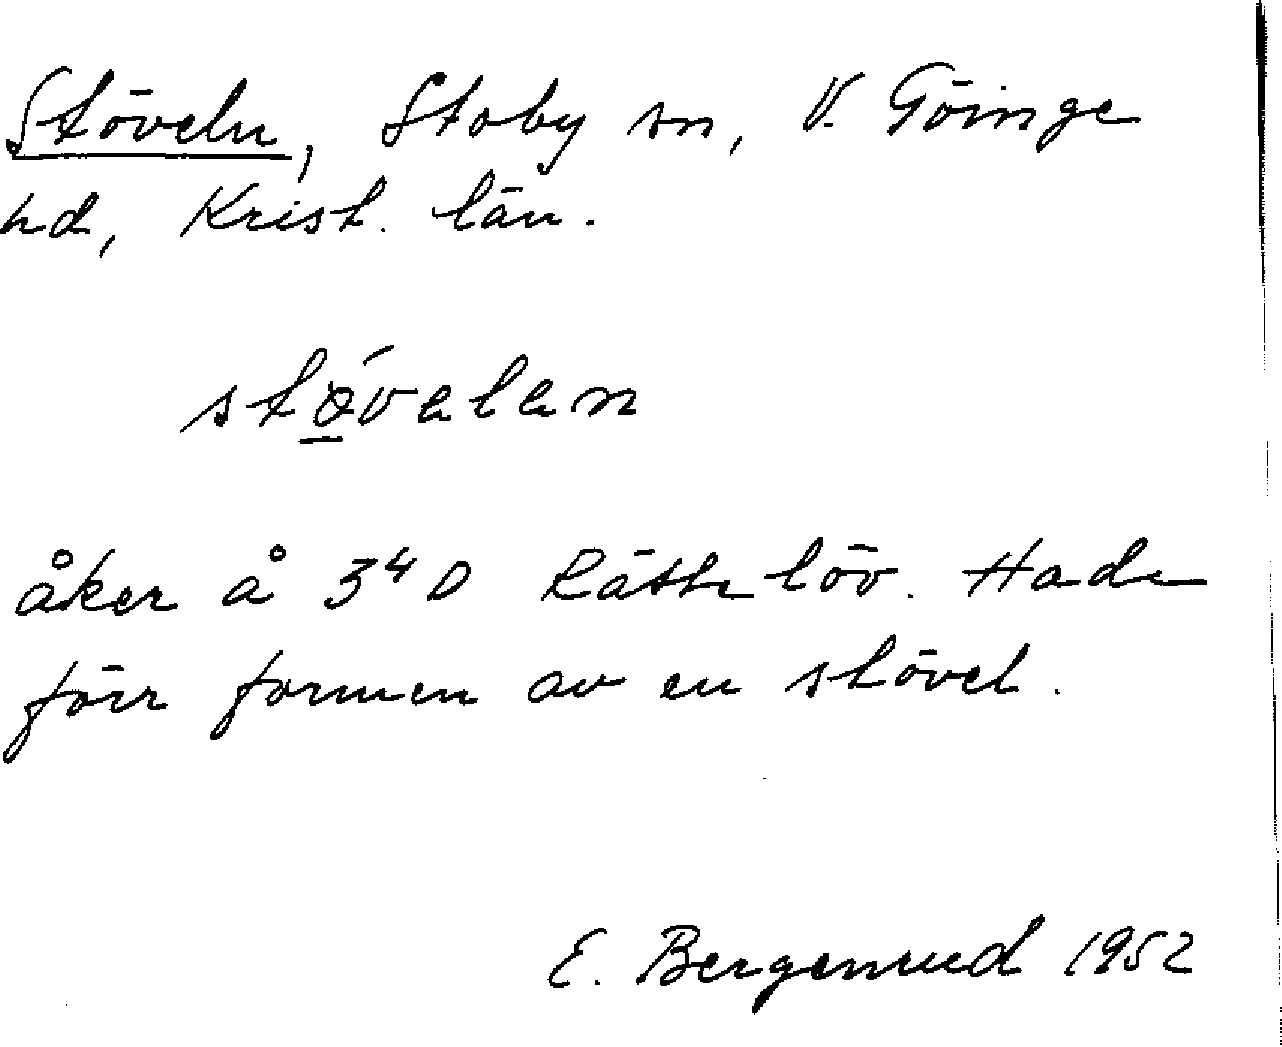 Stöveln, Stoby sn, V. Göinge
hd, Krist. län.
stǿ̲velen
åker å 3⁴ D Rättelöv. Hade
förr formen av en stövel.
E. Bergenrud 1952